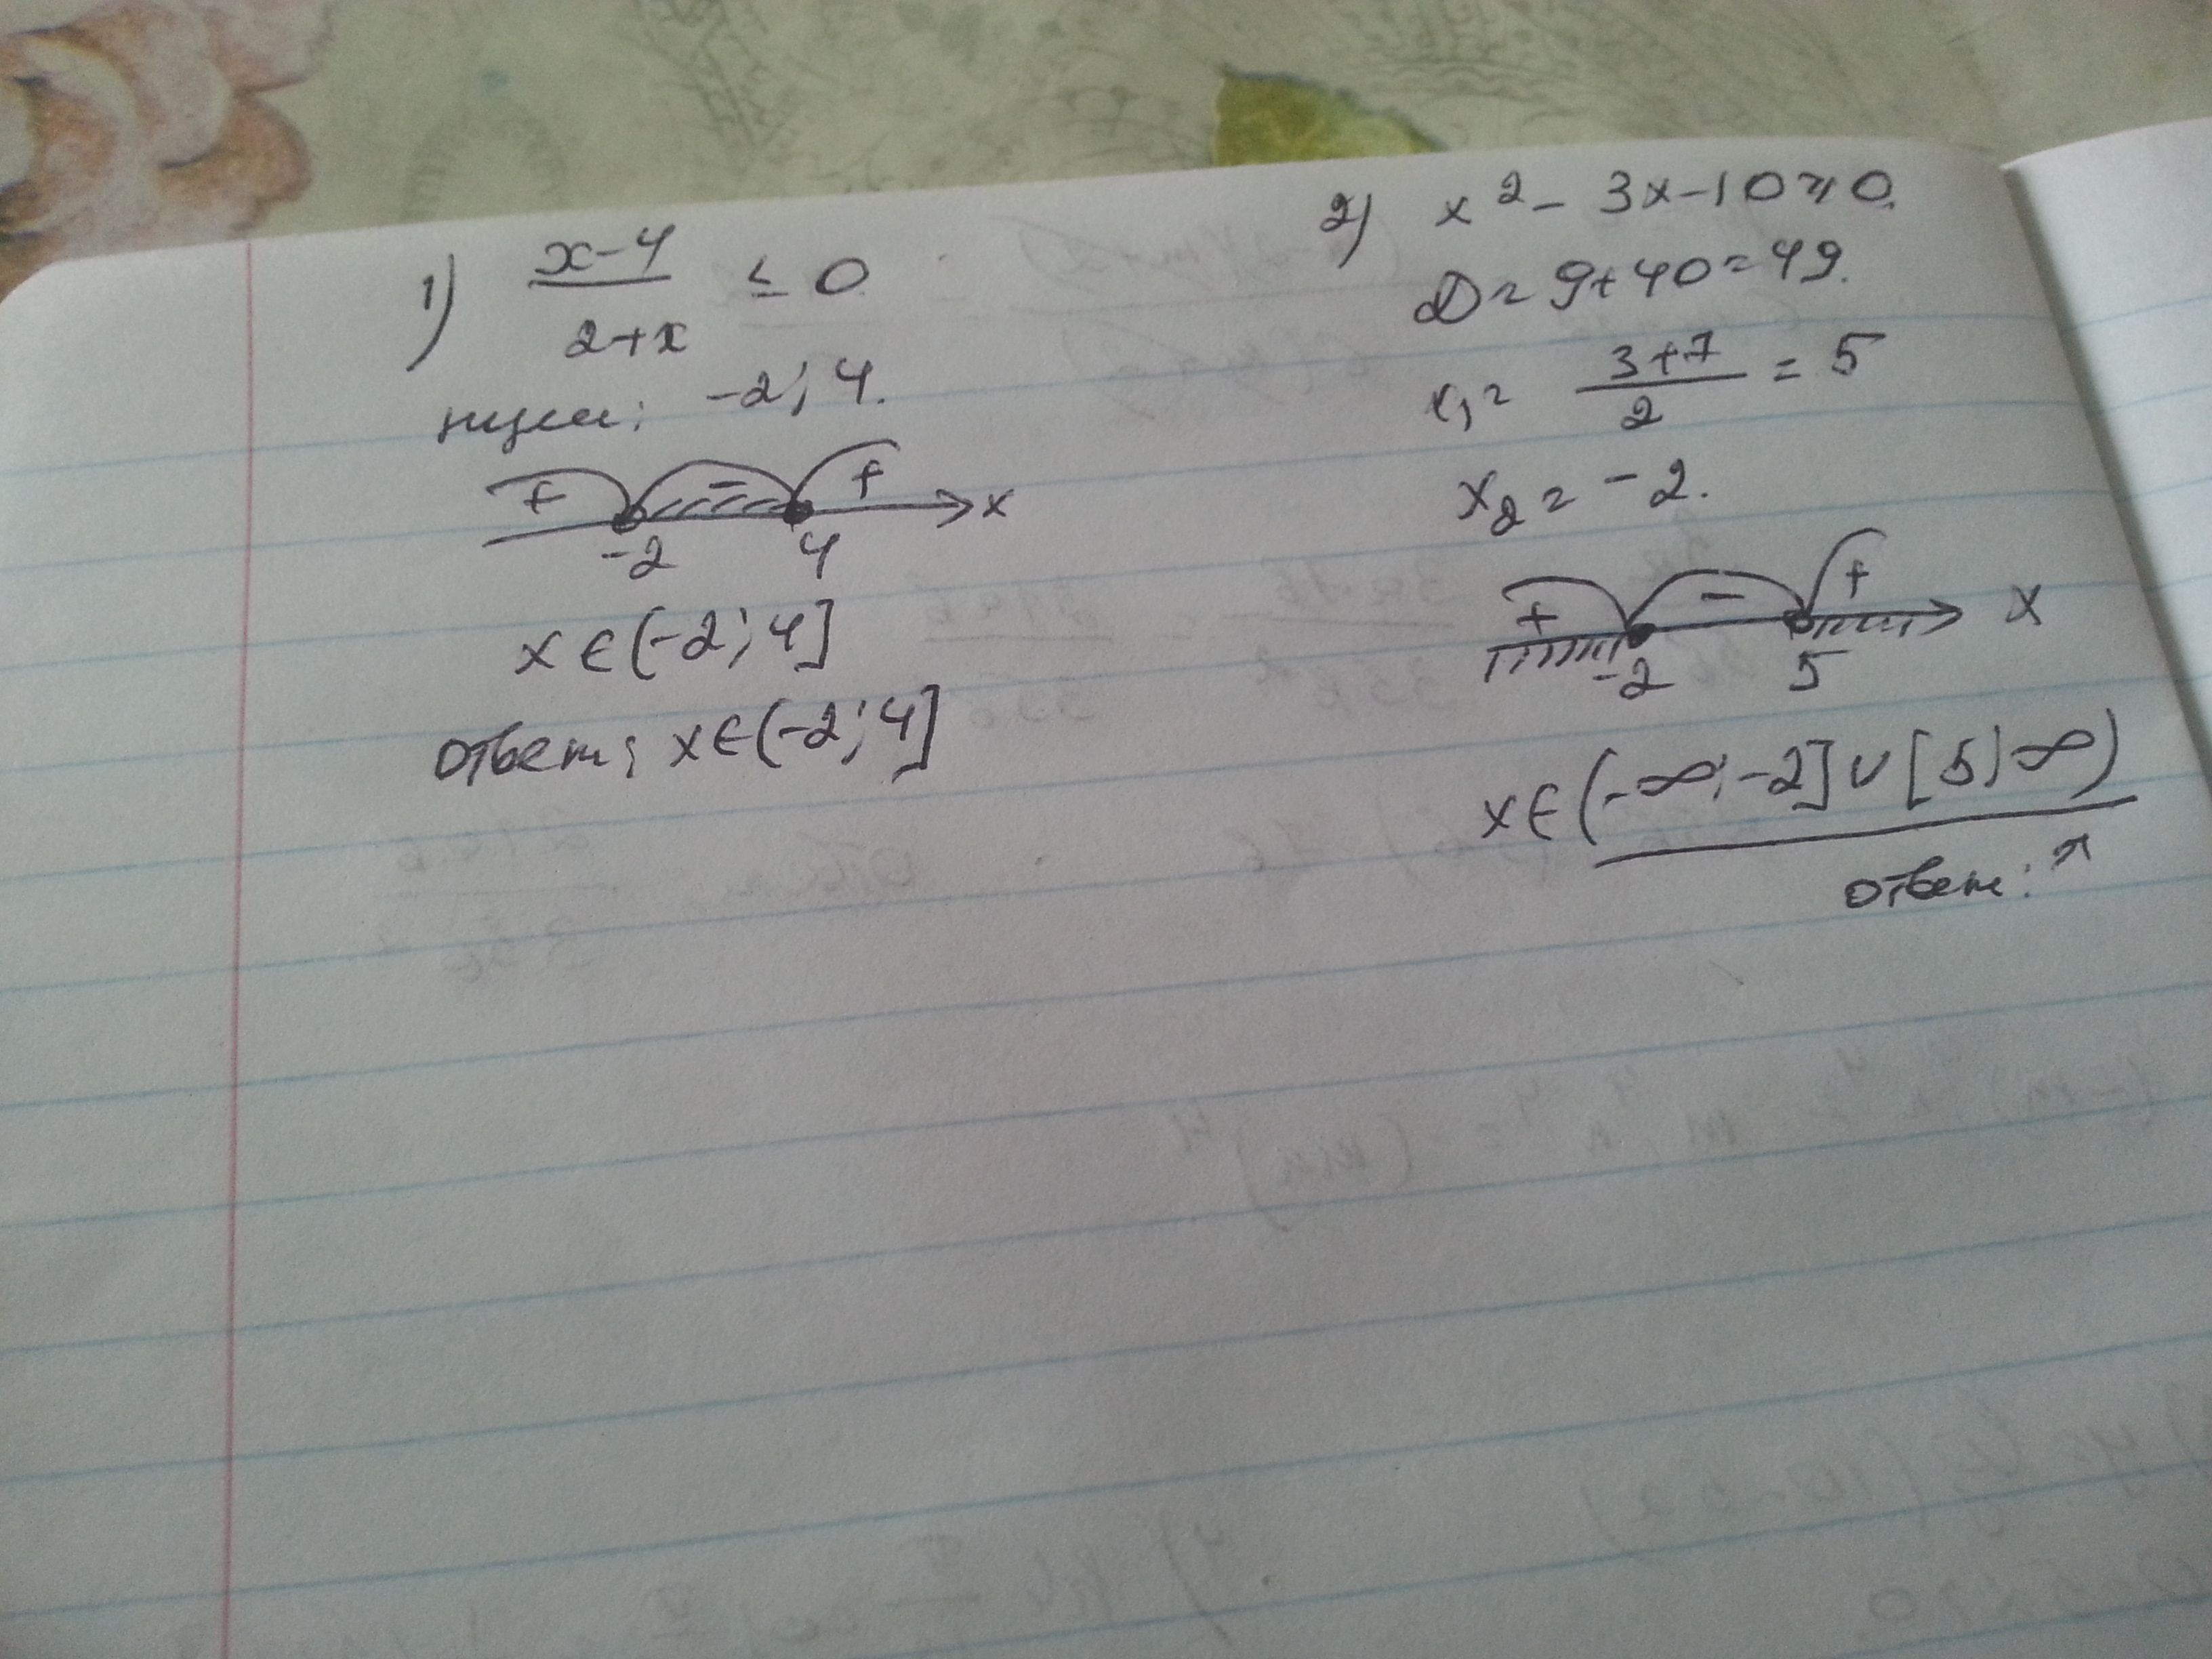 1) x-4
≤ 0
2+x
нули: -2; 4.
+ - + x
-2 4
x ∈ (-2; 4]
Ответ: x ∈ (-2; 4]
2) x² - 3x - 10 ≥ 0.
D = 9 + 40 = 49.
x₁ = 3+7 = 5
2
x₂ = -2.
+ - + x
-2 5
x ∈ (-∞; -2] ∪ [5; ∞)
Ответ: